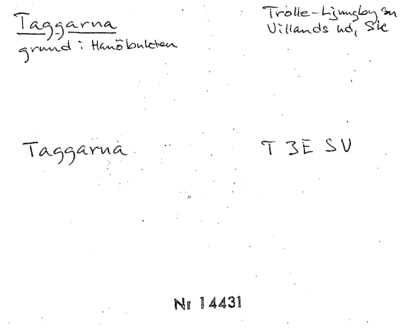 Taggarna
grund i Hanöbukten
Trolle-Ljungby sn
Villands hd, Skå
Taggarna
T 3E SV
Nr 14431